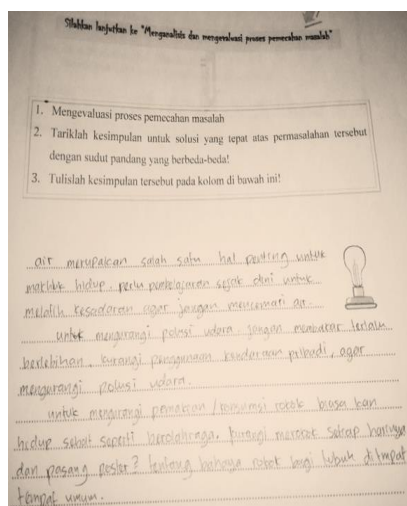 Silahkan lanjutkan ke "Menganalisis dan mengevaluasi proses pemecahan masalah"
1. Mengevaluasi proses pemecahan masalah
2. Tariklah kesimpulan untuk solusi yang tepat atas permasalahan tersebut
dengan sudut pandang yang berbeda-beda!
3. Tulislah kesimpulan tersebut pada kolom di bawah ini!
air merupakan salah satu hal penting untuk
makhluk hidup. perlu pembelajaran sejak dini untuk
melatih kesadaran agar jangan mencemari air
untuk mengurangi polusi udara, jangan membakar
berlebihan, kurangi penggunaan kendaraan pribadi, agar
mengurangi polusi udara.
untuk mengurangi pemakaian / konsumsi rokok biasa kan
hidup sehat seperti berolahraga, kurangi merokok setiap harinya
dan pasang poster² tentang bahaya rokok bagi tubuh ditmpat
tempat umum.